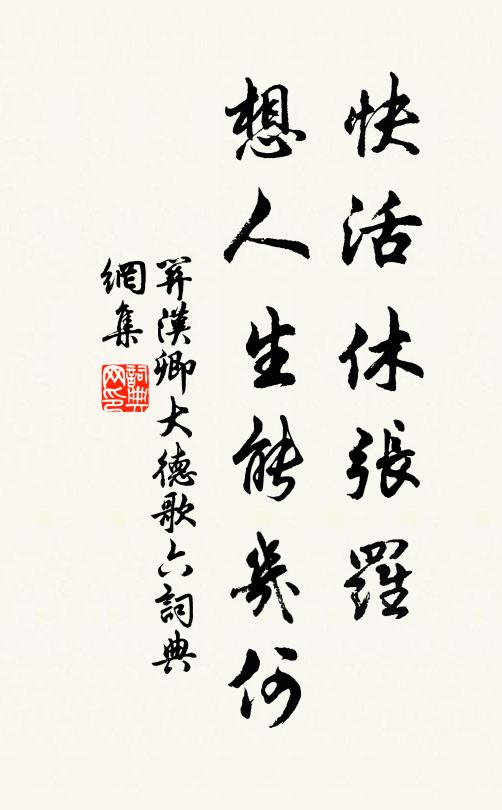 快活休張羅
想人生能幾何
關漢卿大德歌六詞典
網集
詞典
网印